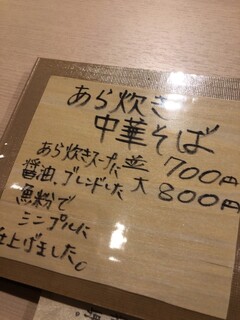 あら炊き
中華そば
並 700円
大 800円
あら炊きスープに
醤油、ブレンドした
魚粉で
シンプルに
仕上げました。